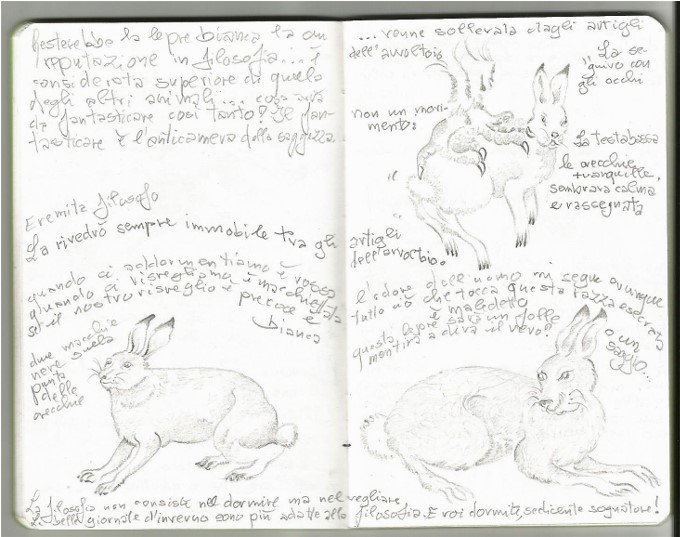 Resterebbe la lepre bianca ha un
reputazione in filosofia... è
considerata superiore a quella
degli altri animali... cosa avrà
da fantasticare così tanto? Se fan-
tasticare è l'anticamera della saggezza.
Eremita filosofo
La rivedrò sempre immobile tra gli
quando ci addormentiamo è rossa
quando ci risvegliamo è macchiata
se il nostro risveglio è precoce è
bianca
due macchie
nere sulla
punta
delle
orecchie
La filosofia non consiste nel dormire ma nel vegliare.
belle giornate d'inverno sono più adatte alla
... venne sollevata dagli artigli
dell'avvoltoio
La se-
guivo con
gli occhi
non un movi-
mento:
La testa bassa
le orecchie
tranquille,
sembrava calma
e rassegnata
artigli
dell'avvoltoio.
l'odore dell'uomo mi segue ovunque
tutto ciò che tocca questa razza esecrata
è maledetto
questa lepre sarà un folle
o un
saggio...
mentirà o dirà il vero?
filosofia. E voi dormite, sedicente sognatore!